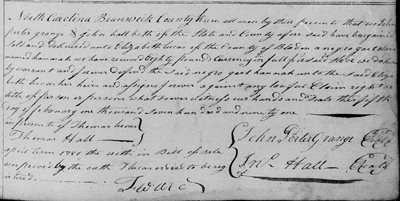 North Carolina Brunswick County know all men by these presents that we John
porter grange & John hall both of the State and County afore said have bargained
sold and delivered unto Elizabeth lucas of the County of Bladen a negro gal
named hannah we have received Eighty pounds Currency in full
warrant and forever Defend the Said negro gal hannah unto the Said Eliza
beth lucas her heirs and asigns forever against any lawful Claim right or
title of person or persons what soever witness our hands and Seals this first
day of february one thousand Seven hundred and ninety one
in presents of Thomas lucas
Thomas Hall
John Porter Grange Seal
Jno. Hall Seal
April term 1791 the within Bill of Sale
was proved by the oath Thomas to be reg
istered.